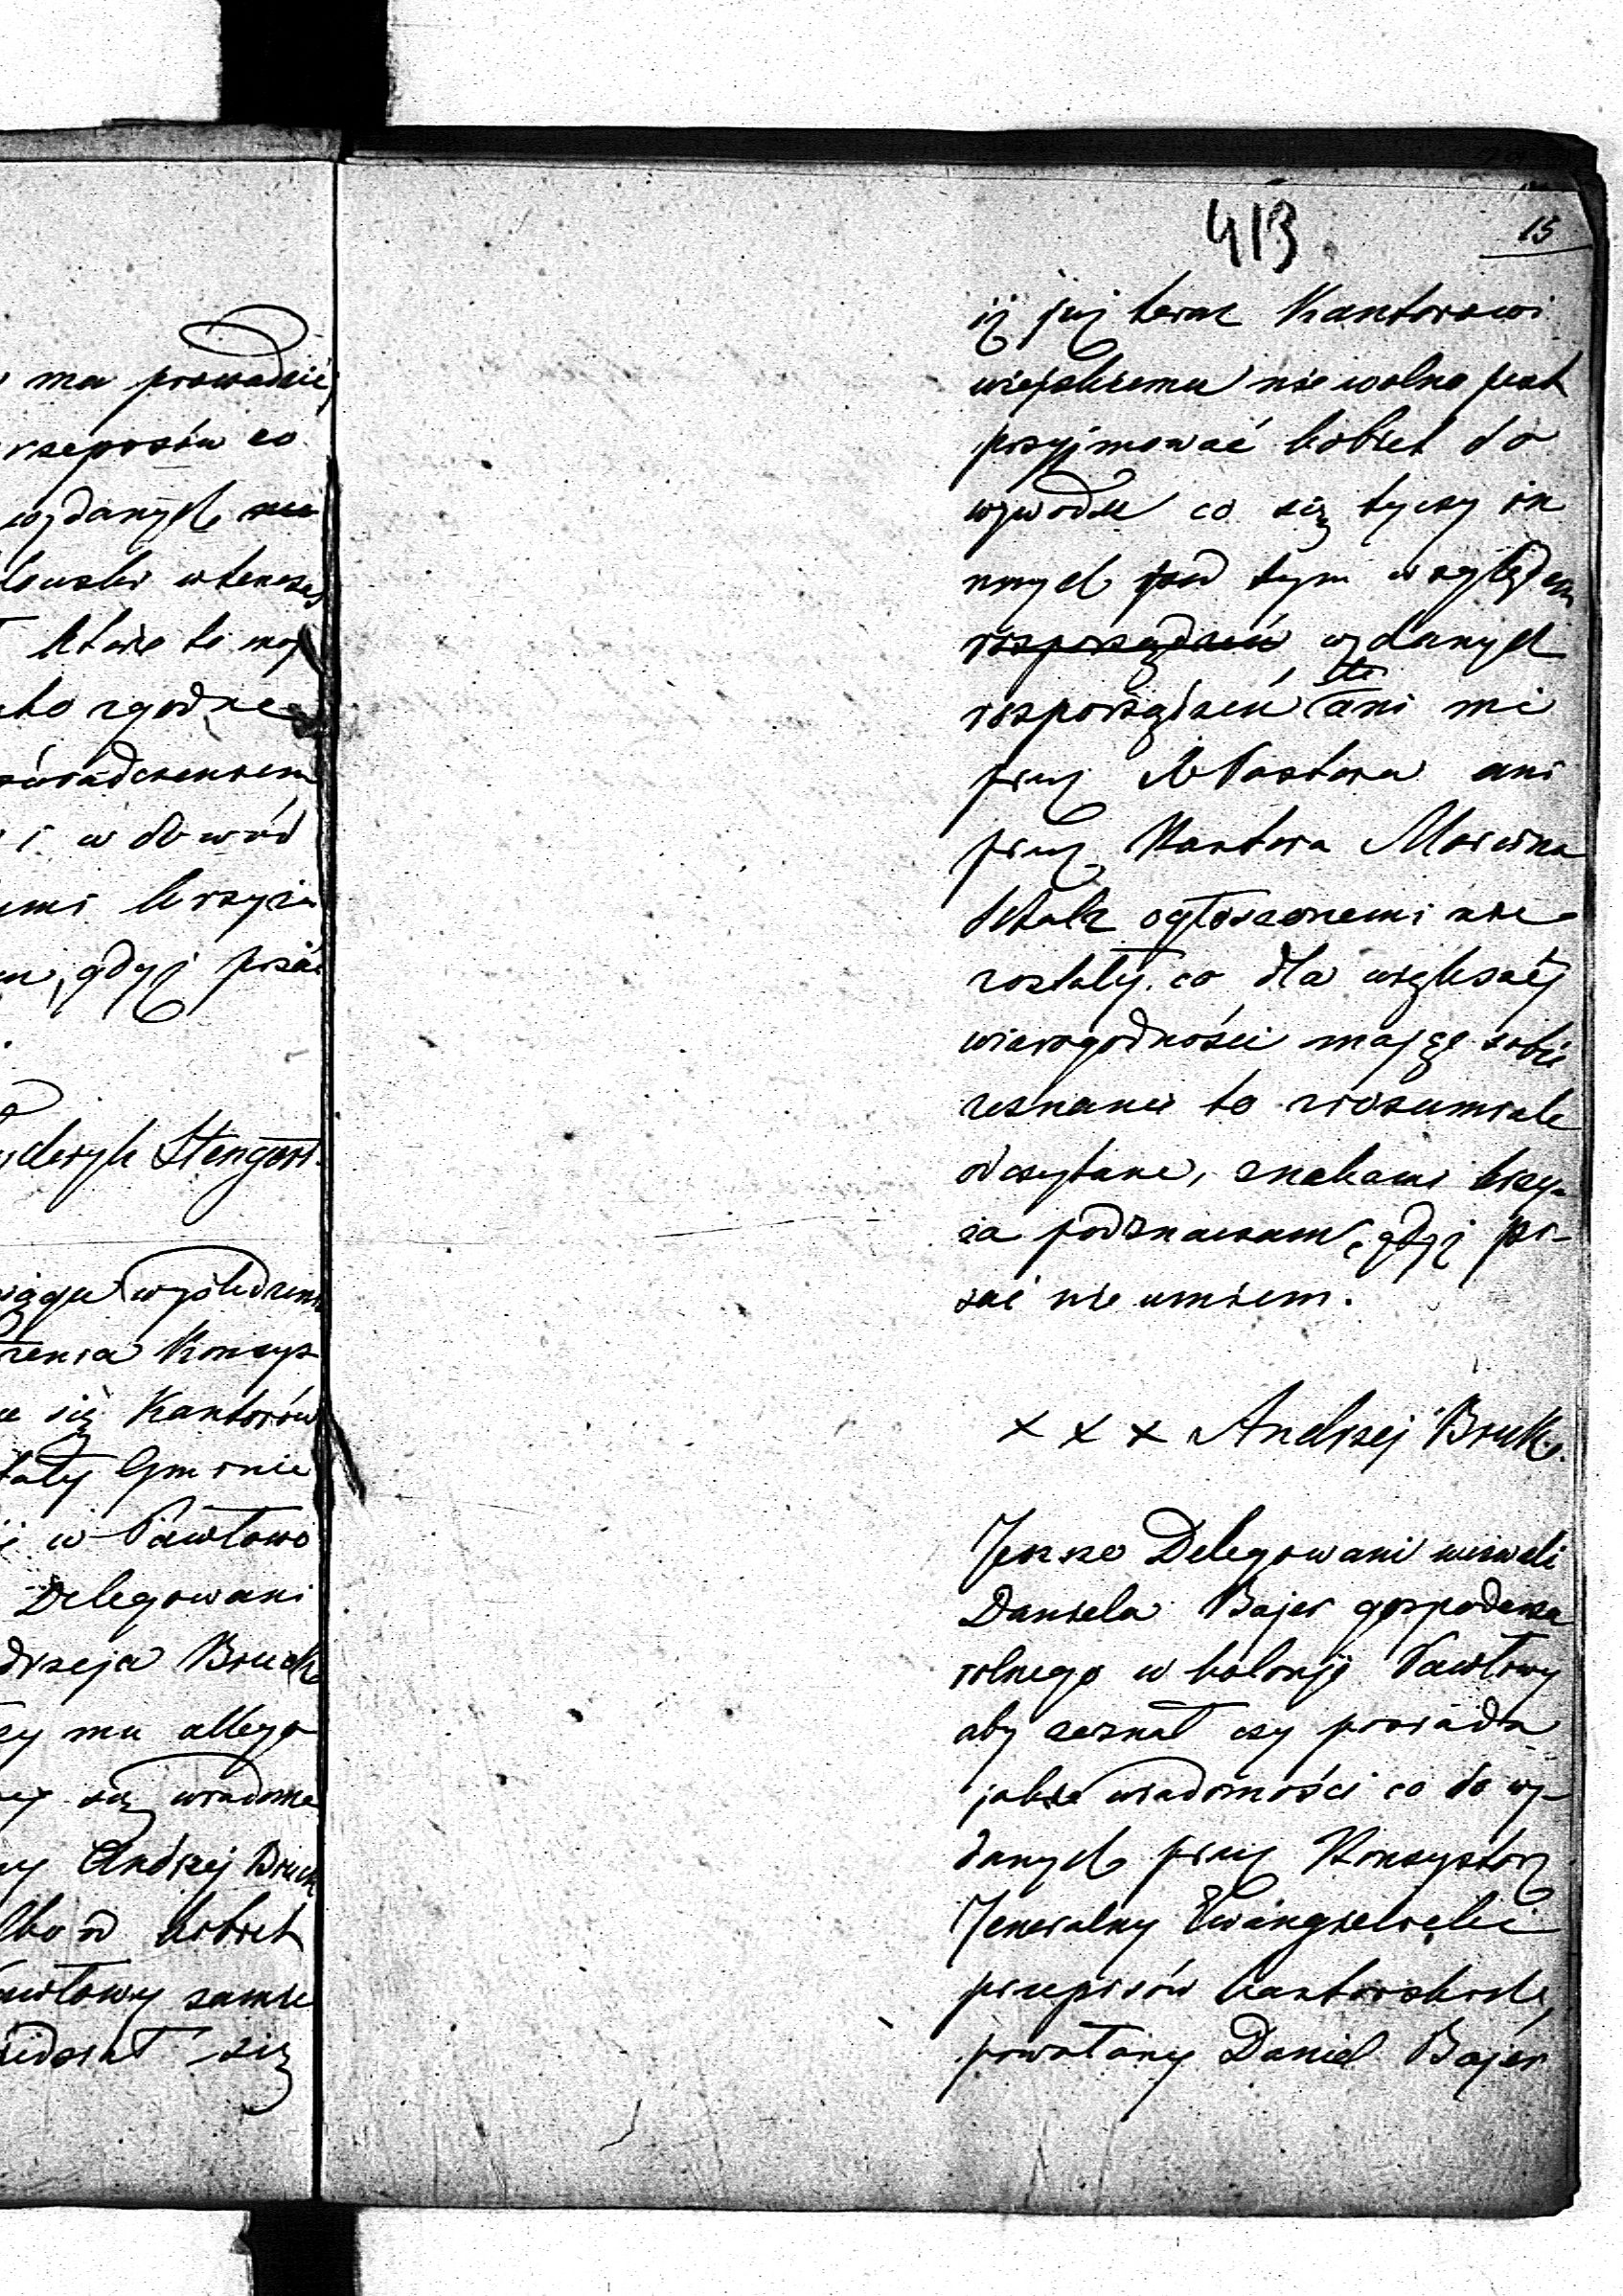 ma prowadzić
przepisów co
wydanych
wtenczas
które to moje
zgodne
świadczeniem
i w dowód
krzyża
gdyż pisać
Stengert.
wyśledzenia
Konsys
się Kantorów
Gminie
w Pawłowo
Delegowani
drzeja Bruck
mu allego
się wiadome
Andrzej Bruck
kobiet
Pawłowy
się
413
15
iż już teraz Kantorowi
wiejskiemu nie wolno jest
przyjmować kobiet do
wywodu co się tyczy in
nnych pod tym względem
rozporządzeń wydanych
rozporządzeń te ani mi
przez Pastora ani
przez Kantora Marcina
Schulz ogłoszonemi nie
zostały. co dla większej
wiarogodności mając sobie
zeznanie to zrozumiale
odczytane, znakami krzy-
ża podznaczam, gdyż pi-
sać nie umiem.
x x x Andrzej Bruk.
Jeszcze Delegowani wezwali
Daniela Bajer gospodarza
rolnego w kolonji Pawłowy
aby zeznał czy posiada
jakie wiadomości co do wy-
danych przez Konsystorz
Jeneralny Ewangielicki
przepisów kantorskich,
powołany Daniel Bajer